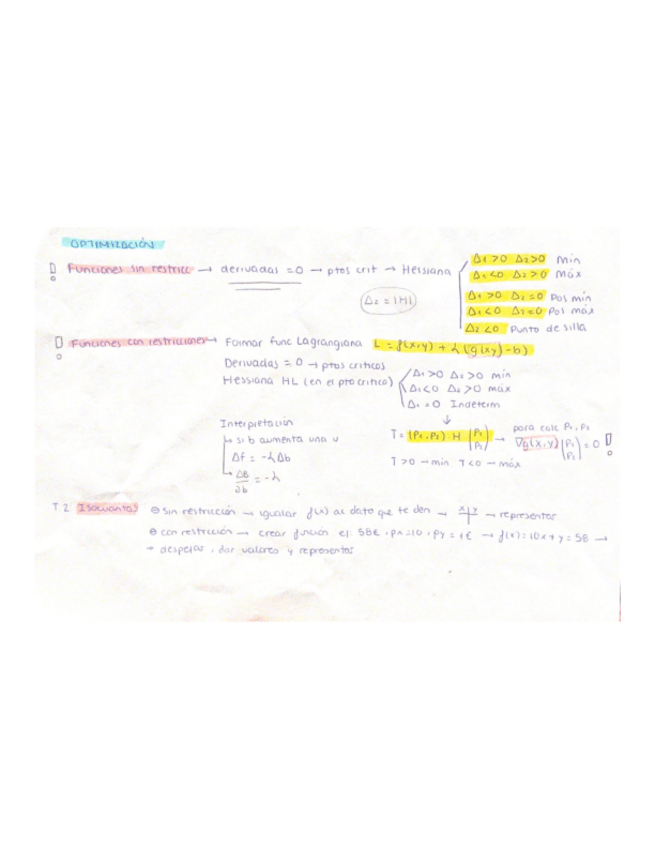 OPTIMIZACIÓN
Funciones sin restricc → derivadas = 0 → ptos crit → Hessiana
Δ1 > 0 Δ2 > 0 Mín
Δ1 < 0 Δ2 > 0 Máx
Δ1 > 0 Δ2 = 0 Pos mín
Δ1 < 0 Δ2 = 0 Pos máx
Δ2 < 0 Punto de silla
Δ2 = |H|
Funciones con restricciones → Formar func Lagrangiana L = f(x,y) + λ(g(x,y) - b)
Derivadas = 0 → ptos críticos
Hessiana HL (en el pto crítico)
Δ1 > 0 Δ2 > 0 mín
Δ1 < 0 Δ2 > 0 máx
Δ2 = 0 Indeterm
Interpretación
si b aumenta una u
Δf = -λΔb
= -λ
T = (P1, P2) H (P1 P2) → para calc P1, P2
∇g(x,y) (P1 P2) = 0 !
T > 0 → mín T < 0 → máx
T2 Isocuantas ⊖ sin restricción → igualar f(x) al dato que te den → x|y → representar
⊖ con restricción → crear función ej: 58€, px=10, py=1€ → f(x) = 10x + y = 58 →
→ despejar, dar valores y representar